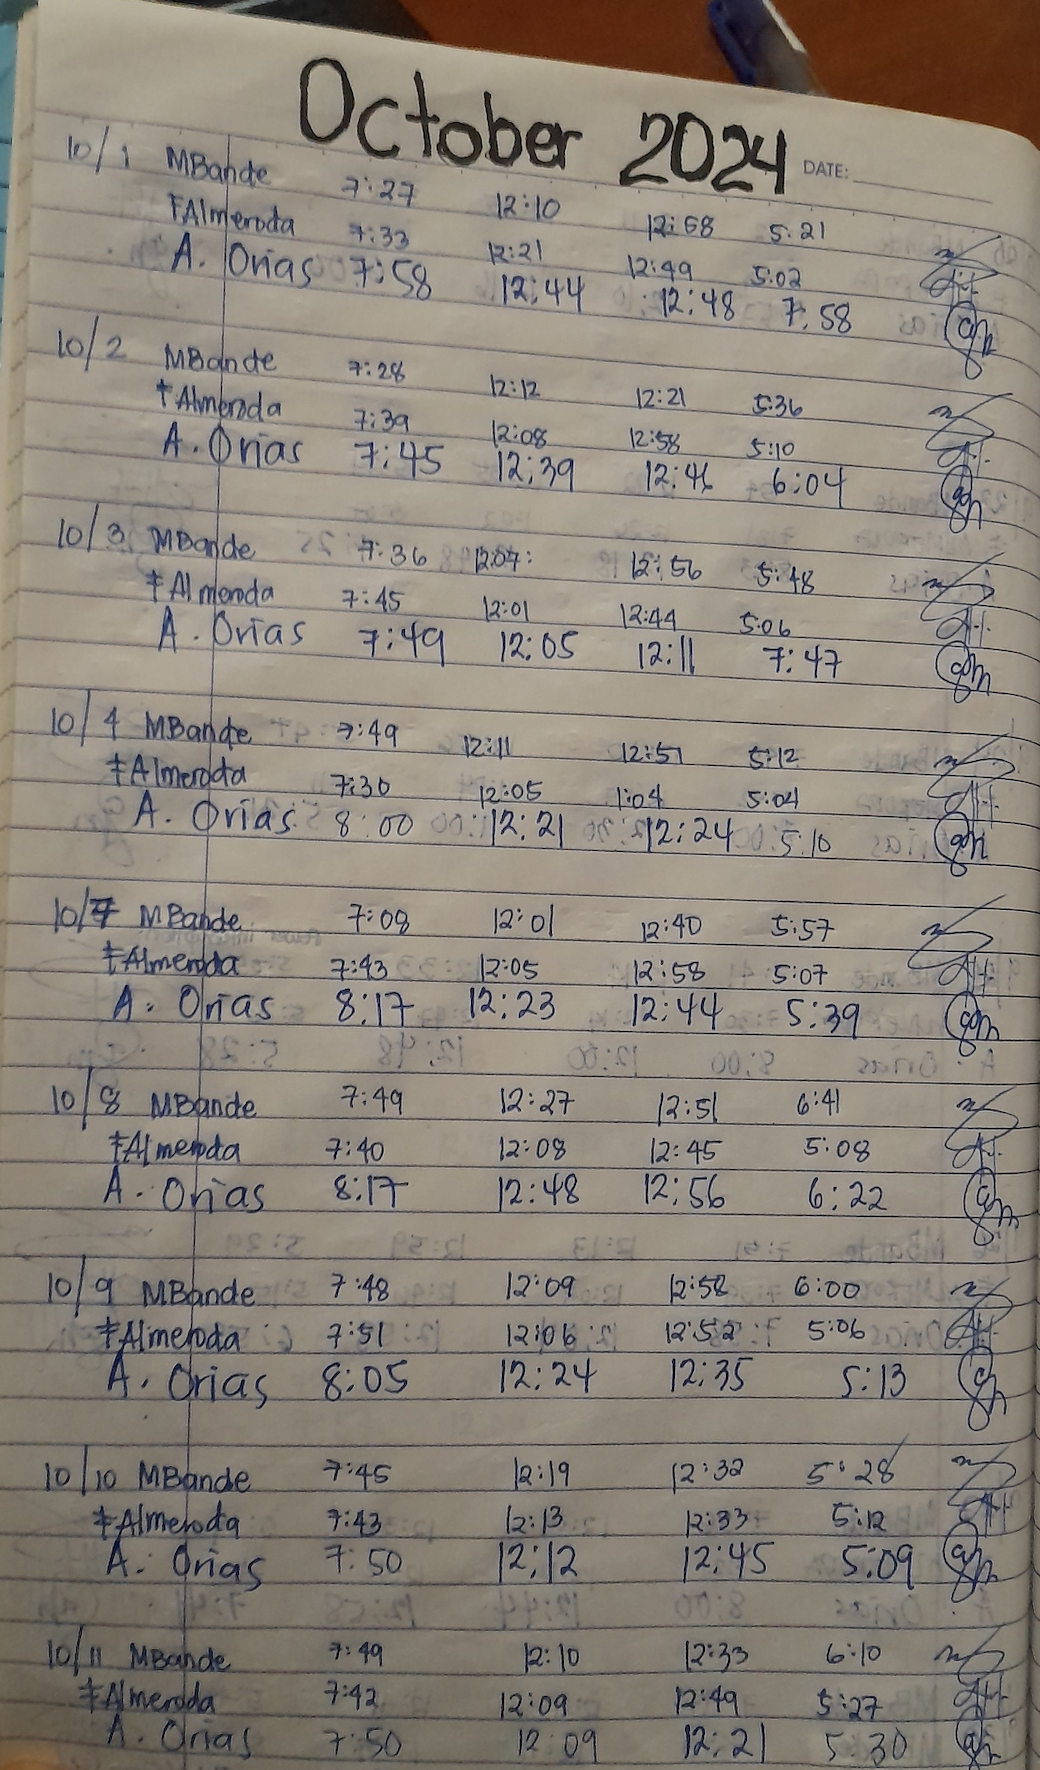 October 2024
DATE:
10/1 MBande 7:27 12:10 12:58 5:21
FAlmeroda 7:33 12:21 12:49 5:02
A. Orias 7:58 12:44 12:48 7:58
10/2 MBande 7:28 12:12 12:21 5:36
FAlmeroda 7:39 12:08 12:58 5:10
A. Orias 7:45 12:39 12:46 6:04
10/3 MBande 7:36 12:07: 12:56 5:48
FAlmeroda 7:45 12:01 12:44 5:06
A. Orias 7:49 12:05 12:11 7:47
10/4 MBande 7:49 12:11 12:51 5:12
FAlmeroda 7:30 12:05 1:04 5:04
A. Orias 8:00 12:21 12:24 5:10
10/7 MBande 7:08 12:01 12:40 5:57
FAlmeroda 7:43 12:05 12:58 5:07
A. Orias 8:17 12:23 12:44 5:39
10/8 MBande 7:49 12:27 12:51 6:41
FAlmeroda 7:40 12:08 12:45 5:08
A. Orias 8:17 12:48 12:56 6:22
10/9 MBande 7:48 12:09 12:58 6:00
FAlmeroda 7:51 12:06 12:52 5:06
A. Orias 8:05 12:24 12:35 5:13
10/10 MBande 7:45 12:19 12:32 5:28
FAlmeroda 7:43 12:13 12:33 5:12
A. Orias 7:50 12:12 12:45 5:09
10/11 MBande 7:49 12:10 12:33 6:10
FAlmeroda 7:42 12:09 12:49 5:27
A. Orias 7:50 12:09 12:21 5:30